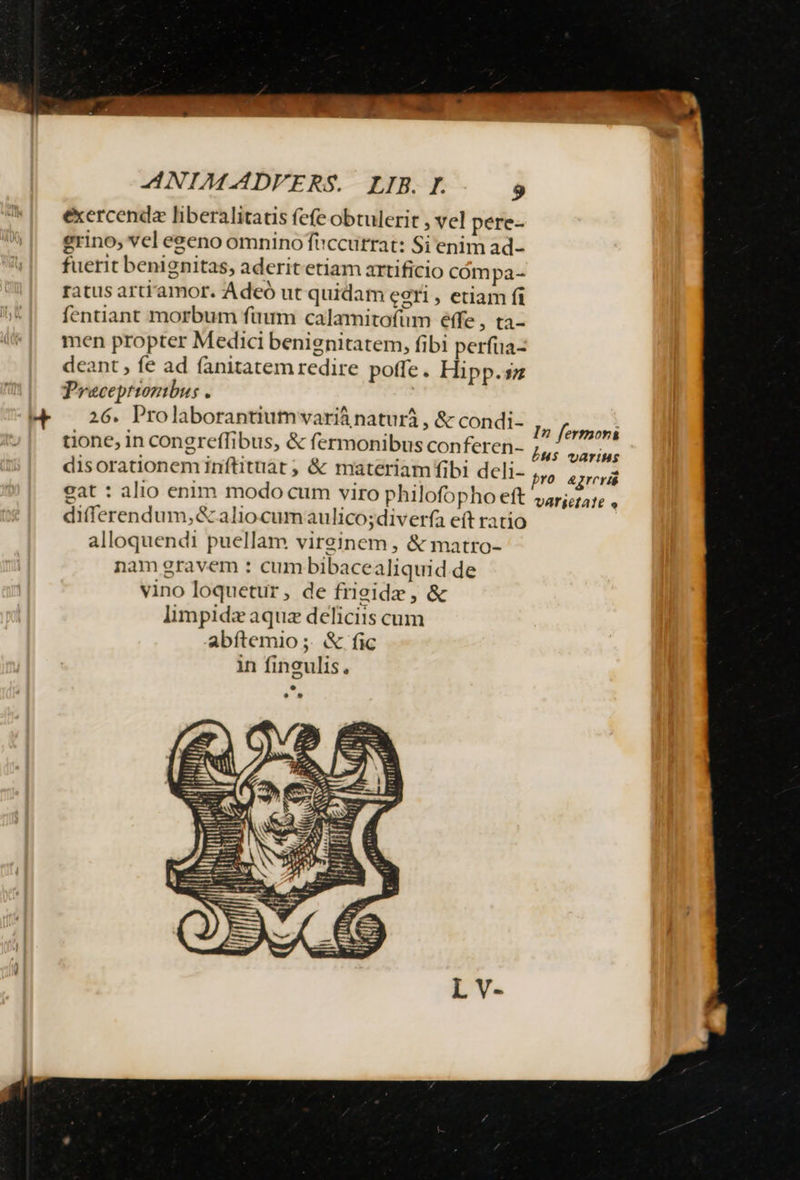 ANIMADVERS. LIB. I. 9
exercendæ liberalitatis ſeſe obtulerit, vel pere-
grino, vel egeno omnino ſuccurrat: Si enim ad-
fuerit benignitas, aderit etiam artificio cómpa-
ratus arti amor. Adeò ut quidam ęgri, etiam ſi
ſentiant morbum ſuum calamitoſum eſſe, ta-
men propter Medici benignitatem, ſibi perſua-
deant, ſe ad ſanitatem redire poſſe. Hipp. in
Præceptionibus.
26. Pro laborantium variâ naturâ, & condi-
tione, in congreſſibus, & ſermonibus conferen-
dis orationem inſtituat, & materiam ſibi deli-
gat: alio enim modo cum viro philoſopho eſt
differendum, & alio cum aulico; diverſa eſt ratio
alloquendi puellam virginem, & matro-
nam gravem: cum bibace aliquid de
vino loquetur, de frigidæ, &
limpidæ aquæ deliciis cum
abſtemio; & ſic
in ſingulis.
In ſermoni
bus varius
pro ægrorū
varietate.
L V-